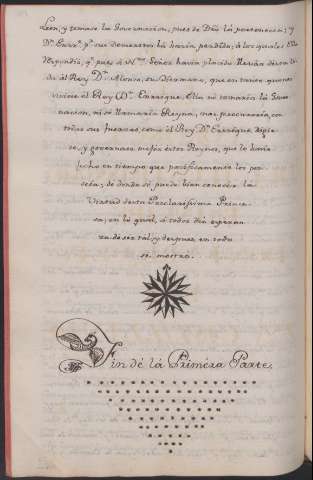 Leon, y tomase la Governacion, pues de Dios le pertenecia; y
Dn. Enrrq.e por sus demeritos la havia perdido; á los quales Ella
respondió, q.e pues á Nro. Señor havia placido llevar de esta vi-
da al Rey Dn. Alonso, su Hermano, que en tanto quanto
viviese el Rey Dn. Enrrique, Ella no tomaria la Gover-
nacion, ni se llamaria Reyna, mas procuraria, con
todas sus fuerzas, como el Rey Dn. Enrrique rigie-
se, y governase mejor estos Reynos, que lo havia
fecho en tiempo que pacificamente los po-
seía; de donde se puede bien conocer la
Virtud desta Preclarissima Prince-
sa, en la qual, á todos dió esperan-
za de ser tal, y despues en todo
se mostró.
Fin de la Primera Parte.